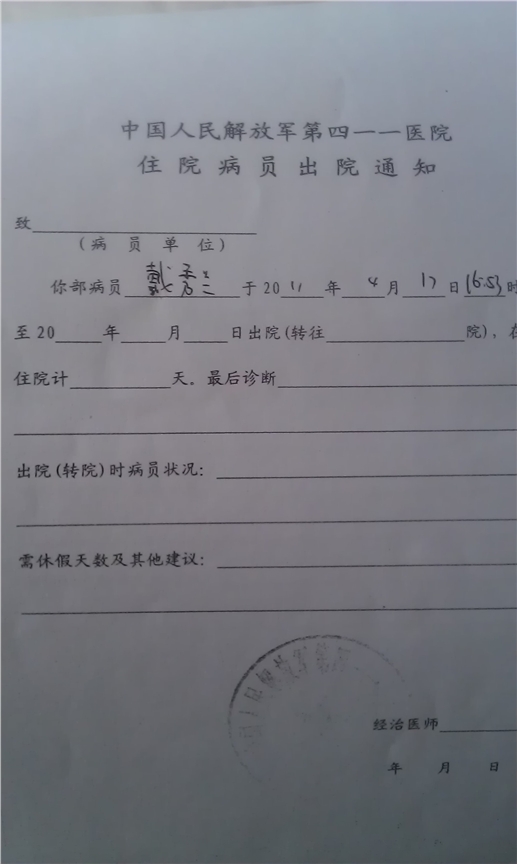 中国人民解放军第四一一医院
住院病员出院通知
致
(病员单位)
你部病员 戴秀兰 于2011年4月17日16:53时
至20 年 月 日出院(转往 院),在
住院计 天。最后诊断
出院(转院)时病员状况:
需休假天数及其他建议:
经治医师
年 月 日